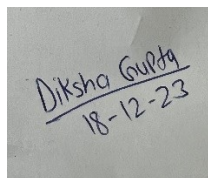 Diksha Gupta
18-12-23